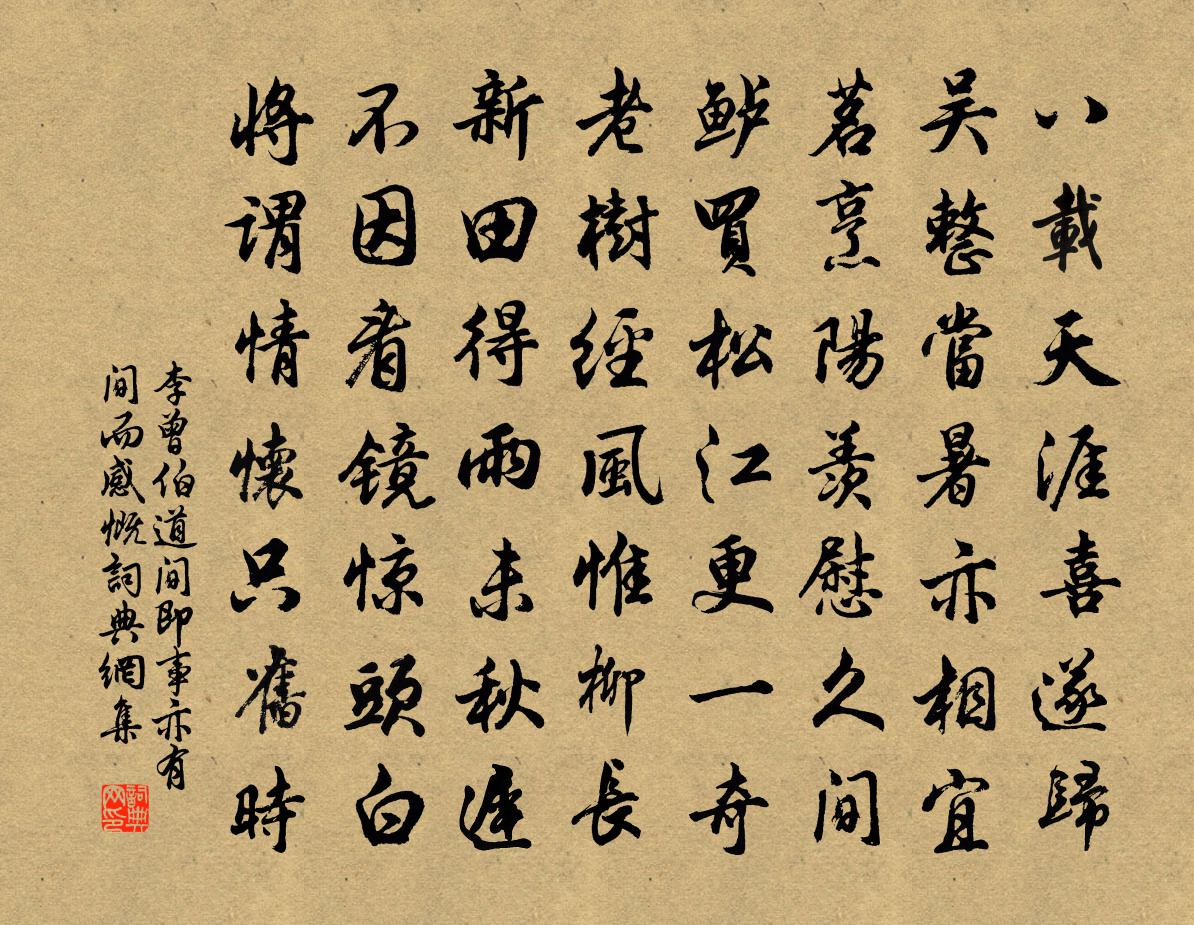 八載天涯喜遂歸
吴整當暑亦相宜
茗烹陽羨慰久间
鲈買松江更一奇
老樹經風惟柳長
新田得雨未秋遲
不因看镜惊頭白
将謂情懷只舊時
李曾伯道间即事亦有
间而感慨詞典網集
詞典
网印